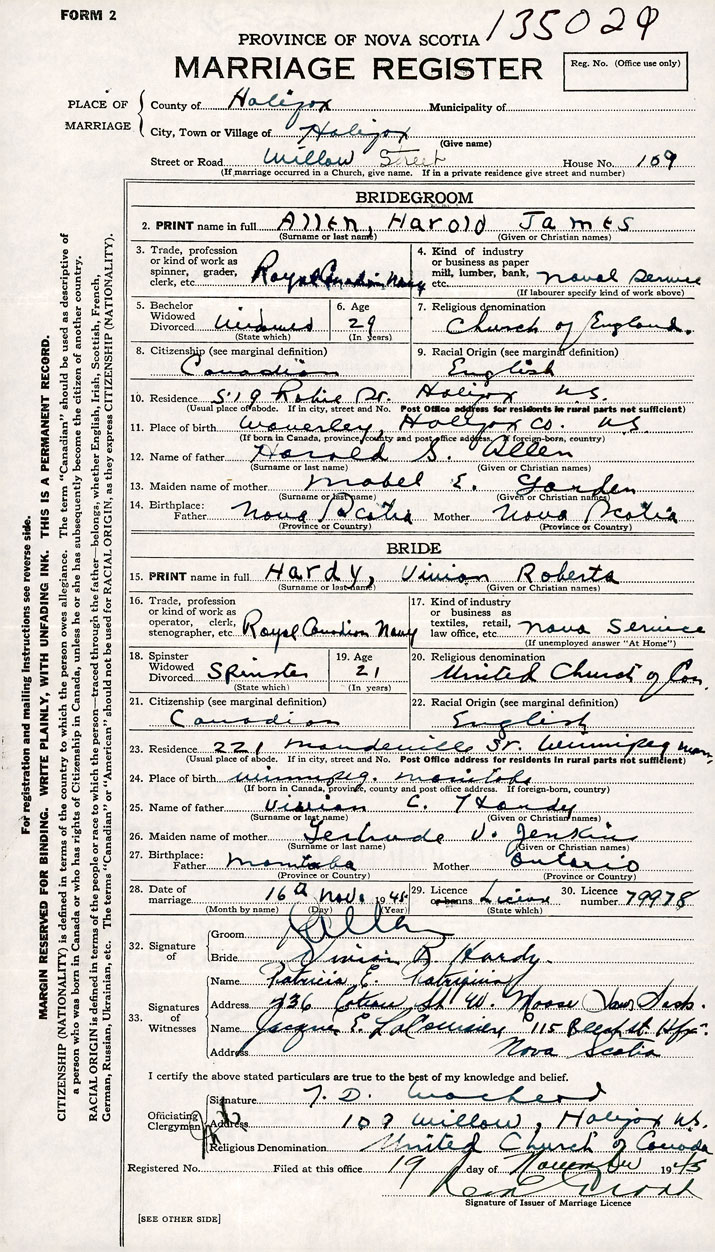 FORM 2
135029
PROVINCE OF NOVA SCOTIA
MARRIAGE REGISTER
Reg. No. (Office use only)
PLACE OF MARRIAGE
County of Halifax Municipality of
City, Town or Village of Halifax
(Give name)
Street or Road Willow Street House No. 109
(If marriage occurred in a Church, give name. If in a private residence give street and number)
BRIDEGROOM
2. PRINT name in full Allen, Harold James
(Surname or last name) (Given or Christian names)
3. Trade, profession or kind of work as spinner, grader, clerk, etc. Royal Canadian Navy
4. Kind of industry or business as paper mill, lumber, bank, etc. Naval Service
(If labourer specify kind of work above)
5. Bachelor Widowed Divorced Widowed
(State which)
6. Age 29
(In years)
7. Religious denomination Church of England.
8. Citizenship (see marginal definition) Canadian
9. Racial Origin (see marginal definition) English
10. Residence 519 Robie St. Halifax N.S.
(Usual place of abode. If in city, street and No. Post Office address for residents in rural parts not sufficient)
11. Place of birth Waverley, Halifax Co. N.S.
(If born in Canada, province, county and post office address. If foreign-born, country)
12. Name of father Harold S. Allen
(Surname or last name) (Given or Christian names)
13. Maiden name of mother Mabel E.
(Surname or last name) (Given or Christian names)
14. Birthplace: Father Nova Scotia Mother Nova Scotia
(Province or Country) (Province or Country)
BRIDE
15. PRINT name in full Hardy, Vivian Roberta
(Surname or last name) (Given or Christian names)
16. Trade, profession or kind of work as operator, clerk, stenographer, etc. Royal Canadian Navy
17. Kind of industry or business as textiles, retail, law office, etc. Nava Service
(If unemployed answer "At Home")
18. Spinster Widowed Divorced Spinster
(State which)
19. Age 21
(In years)
20. Religious denomination United Church of Can.
21. Citizenship (see marginal definition) Canadian
22. Racial Origin (see marginal definition) English
23. Residence 221 Mandeville St. Winnipeg Man.
(Usual place of abode. If in city, street and No. Post Office address for residents in rural parts not sufficient)
24. Place of birth Winnipeg. Manitoba
(If born in Canada, province, county and post office address. If foreign-born, country)
25. Name of father Vivian C. Hardy
(Surname or last name) (Given or Christian names)
26. Maiden name of mother Gertrude V. Jenkins
(Surname or last name) (Given or Christian names)
27. Birthplace: Father Manitoba Mother Ontario
(Province or Country) (Province or Country)
28. Date of marriage 16 Nov. 1945
(Month by name) (Day) (Year)
29. Licence or banns License
(State which)
30. Licence number 79978
32. Signature of
Groom
Bride Vivian R. Hardy.
33. Signatures of Witnesses
Name Patricia E.
Address 736 St W. Moose Jaw Sask.
Name Jacques E. 115 St. Hfx.
Address Nova Scotia
I certify the above stated particulars are true to the best of my knowledge and belief.
Officiating Clergyman
Signature
Address 109 Willow, Halifax N.S.
Religious Denomination United Church of Canada
Registered No. Filed at this office 19 day of November 1945
Signature of Issuer of Marriage Licence
[SEE OTHER SIDE]
For registration and mailing instructions see reverse side.
MARGIN RESERVED FOR BINDING. WRITE PLAINLY, WITH UNFADING INK. THIS IS A PERMANENT RECORD.
CITIZENSHIP (NATIONALITY) is defined in terms of the country to which the person owes allegiance. The term "Canadian" should be used as descriptive of
a person who was born in Canada or who has rights of Citizenship in Canada, unless he or she has subsequently become the citizen of another country.
RACIAL ORIGIN is defined in terms of the people or race to which the person—traced through the father—belongs, whether English, Irish, Scottish, French,
German, Russian, Ukrainian, etc. The terms "Canadian" or "American" should not be used for RACIAL ORIGIN, as they express CITIZENSHIP (NATIONALITY).